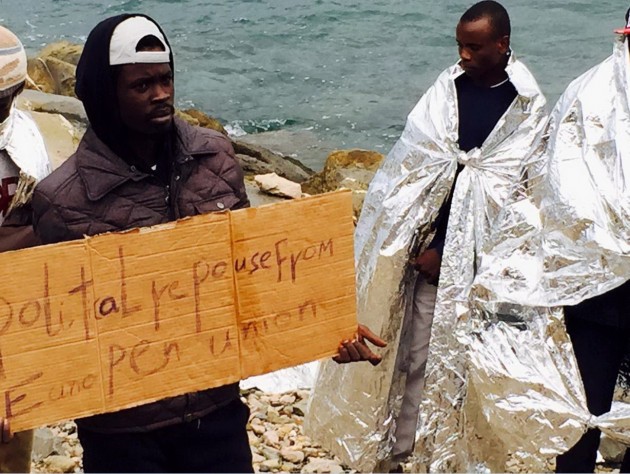 polital repouse From
European union